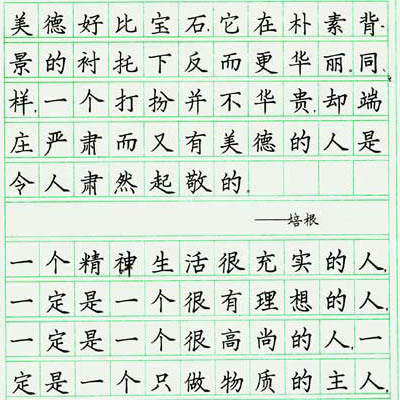 美德好比宝石,它在朴素背
景的衬托下反而更华丽.同
样,一个打扮并不华贵,却端
庄严肃而又有美德的人是
令人肃然起敬的.
——培根
一个精神生活很充实的人,
一定是一个很有理想的人,
一定是一个很高尚的人,一
定是一个只做物质的主人,